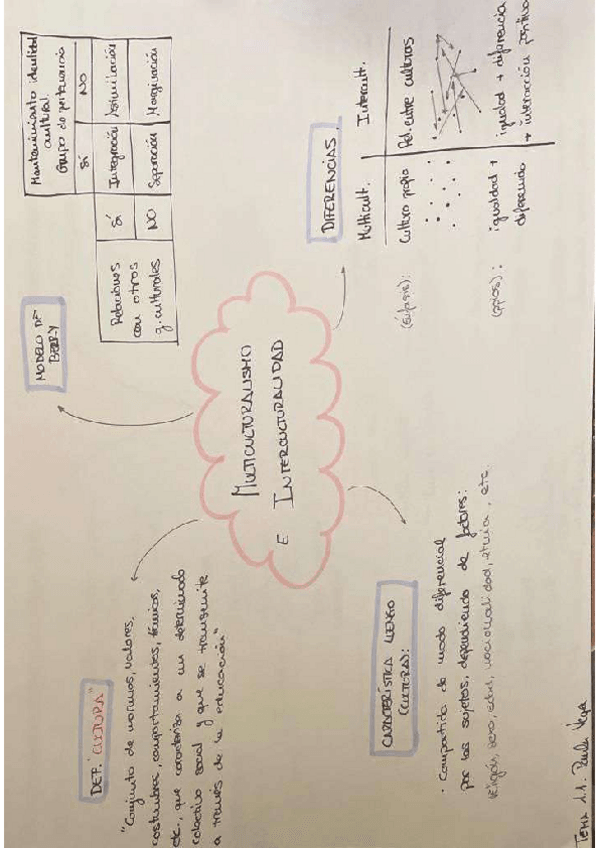 MULTICULTURALISMO
E INTERCULTURALIDAD
DEF. "CULTURA"
"Conjunto de normas, valores,
costumbres, comportamientos, técnicas,
etc., que caracteriza a un determinado
colectivo social y que se transmite
a través de la educación"
MODELO DE
BERRY
Mantenimiento identidad
cultural.
Grupo de pertenencia
SÍ NO
Relaciones
con otros
g. culturales
SÍ Integración Asimilación
NO Separación Marginación
CARACTERÍSTICA
(CULTURA):
· Compartida de modo diferencial
por los sujetos, dependiendo de factores:
religión, sexo, edad, nacionalidad, etnia, etc.
DIFERENCIAS
Multicult. Intercult.
(énfasis): Cultura propia Rel. entre culturas
igualdad + diferencia
igualdad + diferencia
+ interacción positiva
Tema 1.1. Paula Vega